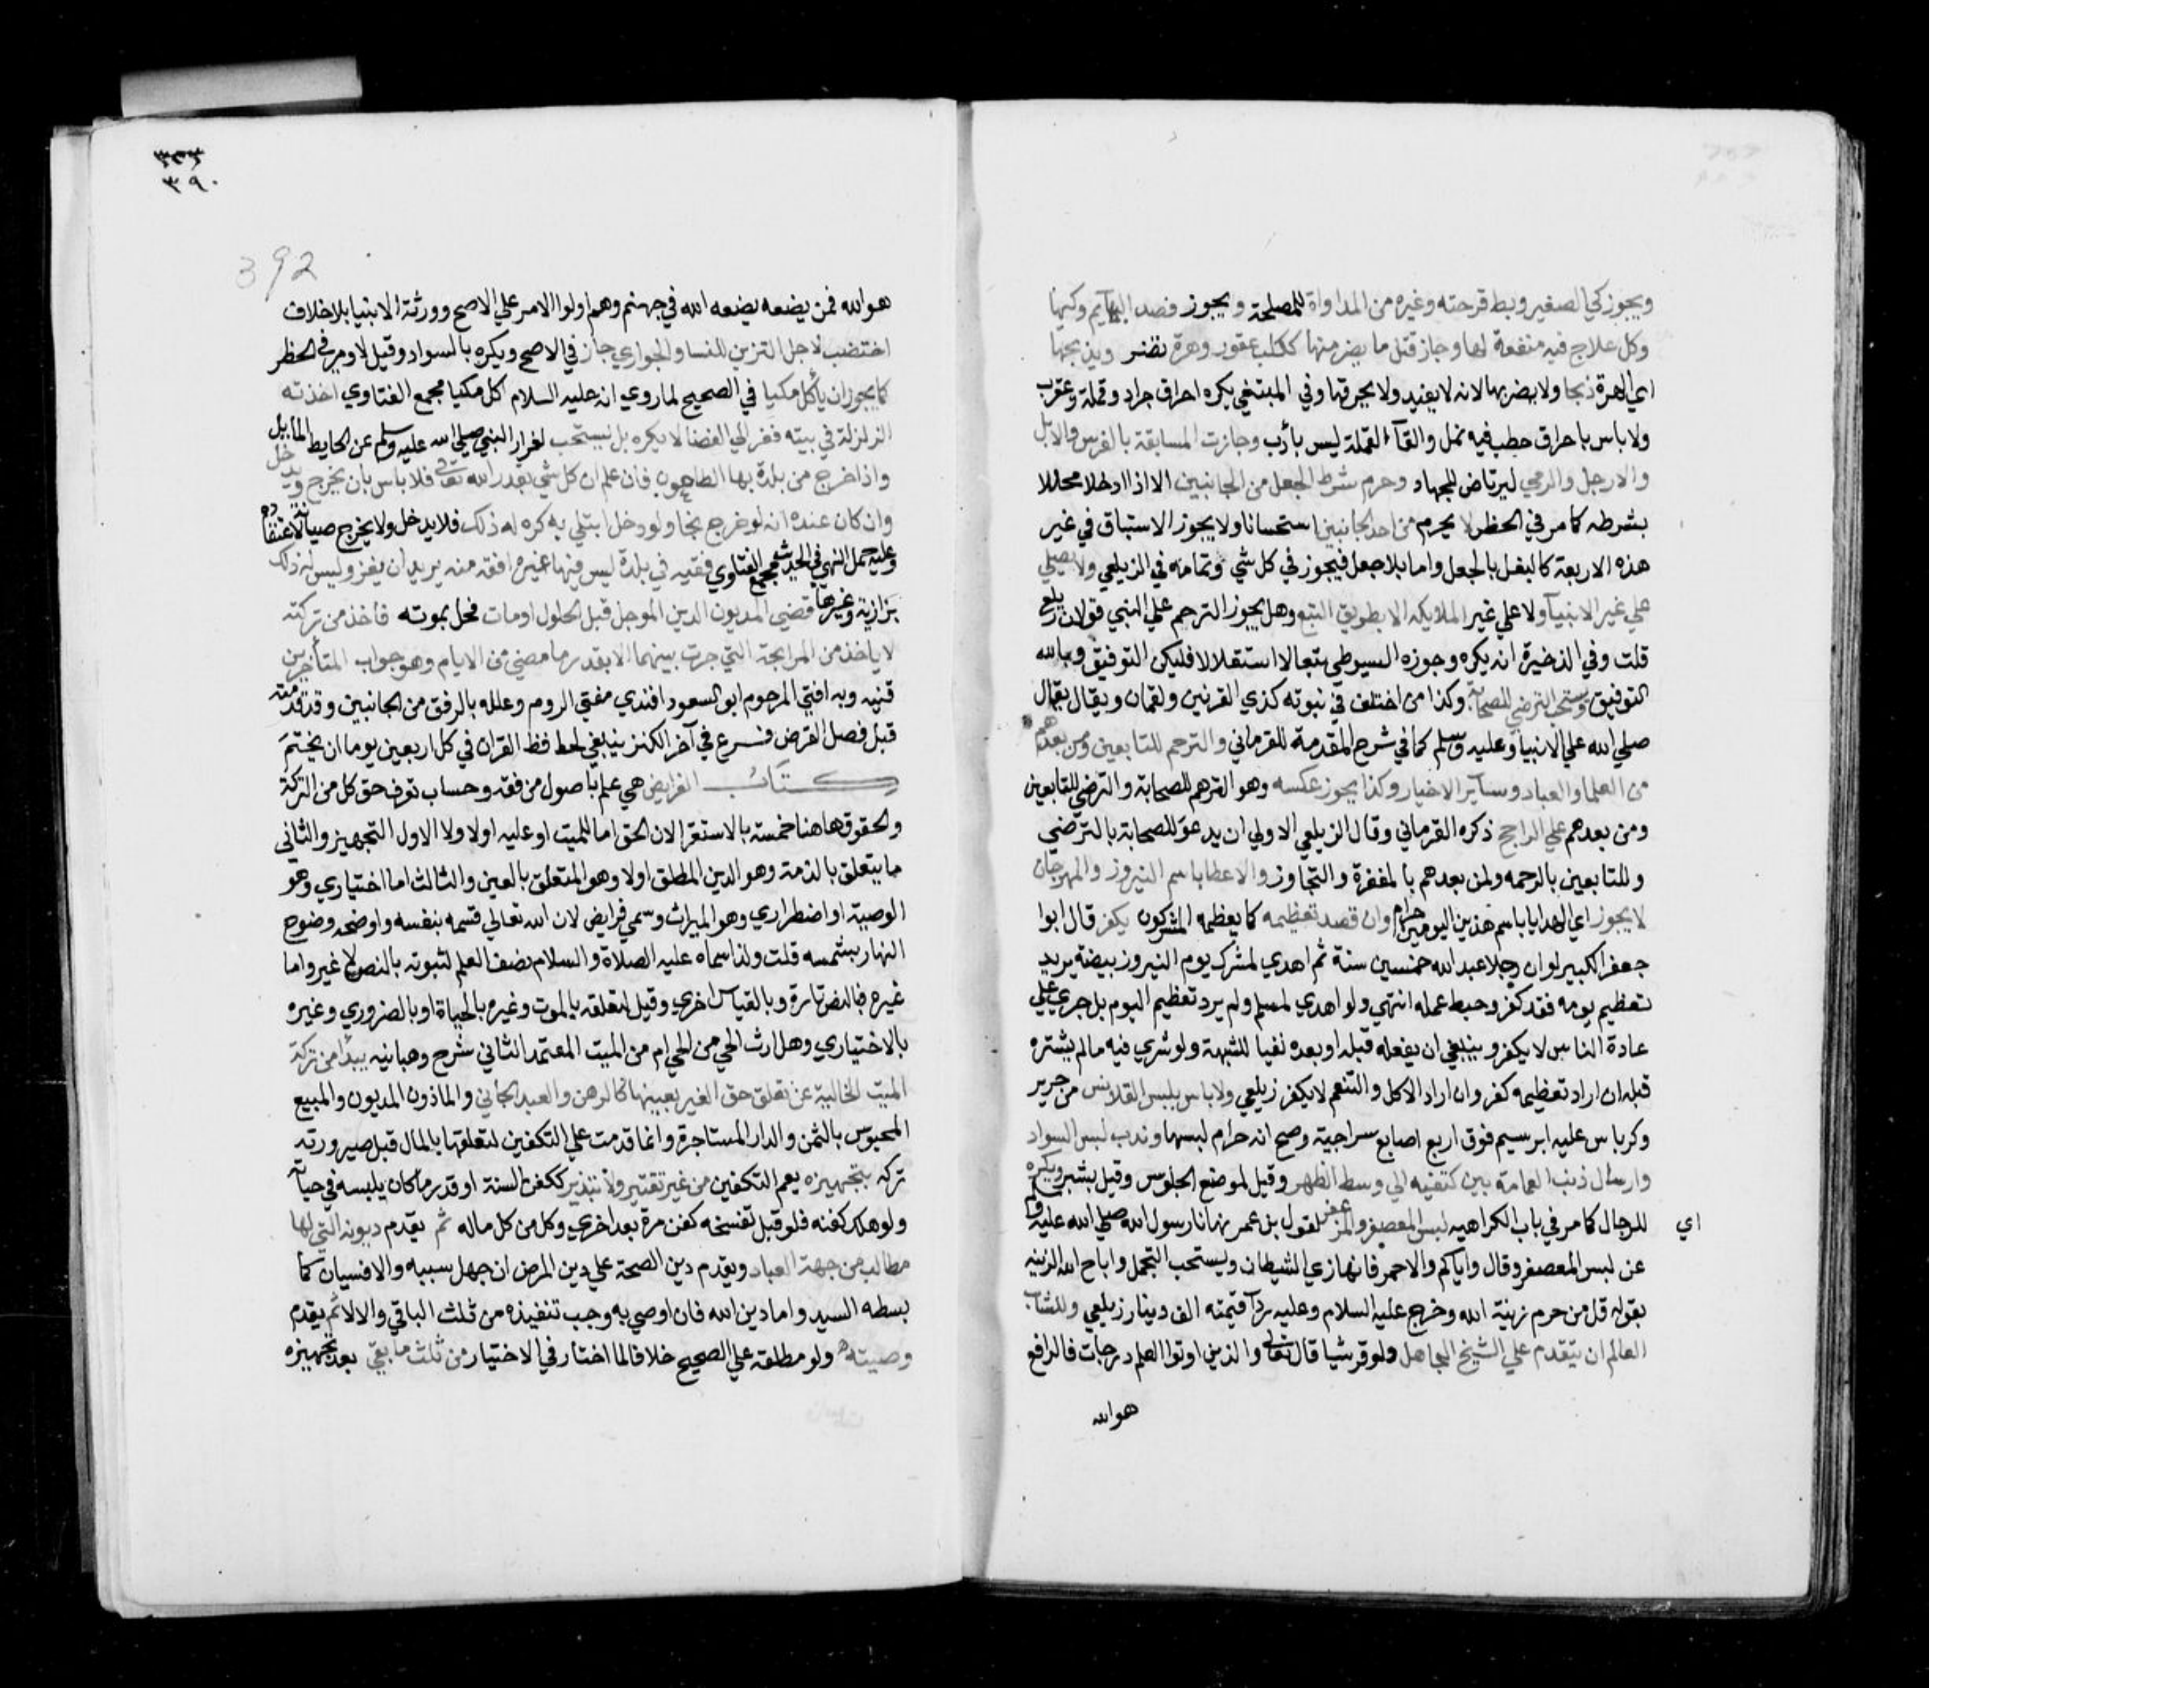 ويجوز كي الصغير وبط قرحته وغيره من المداواة للمصلحة ويجوز فصد البهايم وكيها
وكل علاج فيه منفعة لها وجاز قتل ما يضر منها ككلب عقور وهرة تضر ويذبحها
اي الهرة ذبحا ولا يضربها لانه لا يفيد ولا يحرقها وفي المبتغي يكره احراق جراد وقملة وعقرب
ولا باس باحراق حطب فيه نمل والقآء القملة ليس بأدب وجازت المسابقة بالفرس والابل
والارجل والرمي ليرتاض للجهاد وحرم شرط الجعل من الجانبين الا اذا ادخلا محللا
بشرطه كما مر في الحظر لا يحرم من احد الجانبين استحسانا ولا يجوز الاستباق في غير
هذه الاربعة كالبغل بالجعل واما بلا جعل فيجوز في كل شي وتمامه في الزيلعي ولا يصلي
علي غير الانبيآ ولا علي غير الملايكه الا بطريق التبع وهل يجوز الترحم علي النبي قولان زيلعي
قلت وفي الذخيرة انه يكره وجوزه السيوطي تبعا لا استقلالا فليكن التوفيق وبالله
التوفيق ويستحب الترضي للصحابة وكذا من اختلف في نبوته كذي القرنين ولقمان ويقال يقال
صلي الله علي الانبيا وعليه وسلم كما في شرح المقدمة للقرماني والترحم للتابعين ومن بعدهم
من العلما والعباد وسآير الاخيار وكذا يجوز عكسه وهو الترحم للصحابة والترضي للتابعين
ومن بعدهم علي الراجح ذكره القرماني وقال الزيلعي الاولي ان يدعو للصحابة بالترضي
وللتابعين بالرحمه ولمن بعدهم بالمغفرة والتجاوز والاعطا باسم النيروز والمهرجان
لا يجوز اي الهدايا باسم هذين اليومين حرام وان قصد تعظيمه كما يعظمه المشركون يكفر قال ابوا
جعفر الكبير لو ان رجلا عبد الله خمسين سنة ثم اهدي لمشرك يوم النيروز بيضة يريد
تعظيم يومه فقد كفر وحبط عمله انتهي ولو اهدي لمسلم ولم يرد تعظيم اليوم بل جري علي
عادة الناس لا يكفر وينبغي ان يفعله قبله او بعده نفيا للشبهة ولو شري فيه مالم يشتره
قبله ان اراد تعظيمه كفر وان اراد الاكل والتنعم لا يكفر زيلعي ولا باس بلبس القلانس من حرير
وكرباس عليه ابرسيم فوق اربع اصابع سراجية وصح انه حرام لبسها وندب لبس السواد
وارسال ذنب العمامة بين كتفيه الي وسط الظهر وقيل لموضع الجلوس وقيل بشبر ويكره
اي للرجال كما مر في باب الكراهيه لبس المعصفر والمزعفر لقول بن عمر نهانا رسول الله صلي الله عليه وسلم
عن لبس المعصفر وقال واياكم والاحمر فانها زي الشيطان ويستحب التجمل واباح الله الزينه
بقوله قل من حرم زينة الله وخرج عليه السلام وعليه ردآ قيمته الف دينار زيلعي وللشاب
العالم ان يتقدم علي الشيخ الجاهل ولو قرشيا قال تعالي والذين اوتوا العلم درجات فالرافع
هو الله
٣٩٠
392
هو الله فمن يضعه يضعه الله في جهنم وهم اولوا الامر علي الاصح وورثة الانبيا بلا خلاف
اختضب لاجل التزين للنسا والجواري جاز في الاصح ويكره بالسواد وقيل لا ومر في الحظر
كما يجوز ان يأكل مكيا في الصحيح لما روي انه عليه السلام اكل مكيا مجمع الفتاوي اخذته
الزلزلة في بيته ففر الي الفضا لا يكره بل يستحب لفرار النبي صلي الله عليه وسلم عن الحايط المأيل
واذا خرج من بلدة بها الطاعون فان علم ان كل شي بقدر الله تعالي فلا باس بان يخرج ويدخل
وان كان عنده انه لو خرج نجا ولو دخل ابتلي به كره له ذلك فلا يدخل ولا يخرج صيانة لاعتقاده
وعليه حمل النهي في الحديث مجمع الفتاوي فقيه في بلدة ليس فيها غيره افقه منه يريد ان يغزو ليس له ذلك
بزازية وغيرها قضي المديون الدين الموجل قبل الحلول او مات فحل بموته فاخذ من تركته
لا ياخذ من المرابحة التي جرت بينهما الا بقدر ما مضي من الايام وهو جواب المتأخرين
قنيه وبه افتي المرحوم ابو السعود افندي مفتي الروم وعلله بالرفق من الجانبين وقد قدمته
قبل فصل القرض فرع في آخر الكنز ينبغي لحافظ القران في كل اربعين يوما ان يختم
كتاب الفرايض هي علم باصول من فقه وحساب تعرف حق كل من التركة
والحقوق هاهنا خمسة بالاستقرا لان الحق اما للميت او عليه اولا ولا الاول التجهيز والثاني
ما يتعلق بالذمة وهو الدين المطلق اولا وهو المتعلق بالعين والثالث اما اختياري وهو
الوصية او اضطراري وهو الميراث وسمي فرايض لان الله تعالي قسمه بنفسه واوضحه وضوح
النهار بشمسه قلت ولذا سماه عليه الصلاة والسلام نصف العلم لثبوته بالنص لا غير واما
غيره فالنص تارة وبالقياس اخري وقيل لتعلقه بالموت وغيره بالحياة او بالضروري وغيره
بالاختياري وهل ارث الحي من الحي ام من الميت المعتمد الثاني شرح وهبانيه يبدأ من تركة
الميت الخالية عن تعلق حق الغير بعينها كالرهن والعبد الجاني والماذون المديون والمبيع
المحبوس بالثمن والدار المستاجرة وانما قدمت علي التكفين لتعلقها بالمال قبل صيرورته
تركه بتجهيزه يعم التكفين من غير تقتير ولا تبذير ككفن السنة او قدر ما كان يلبسه في حياته
ولو هلك كفنه فلو قبل تفسخه كفن مرة بعد اخري وكل من كل ماله ثم يقدم ديونه التي لها
مطالب من جهة العباد ويقدم دين الصحة علي دين المرض ان جهل سببه والا فسيان كما
بسطه السيد واما دين الله فان اوصي به وجب تنفيذه من ثلث الباقي والا لا ثم يقدم
وصيته ولو مطلقه علي الصحيح خلافا لما اختار في الاختيار من ثلث ما بقي بعد تجهيزه